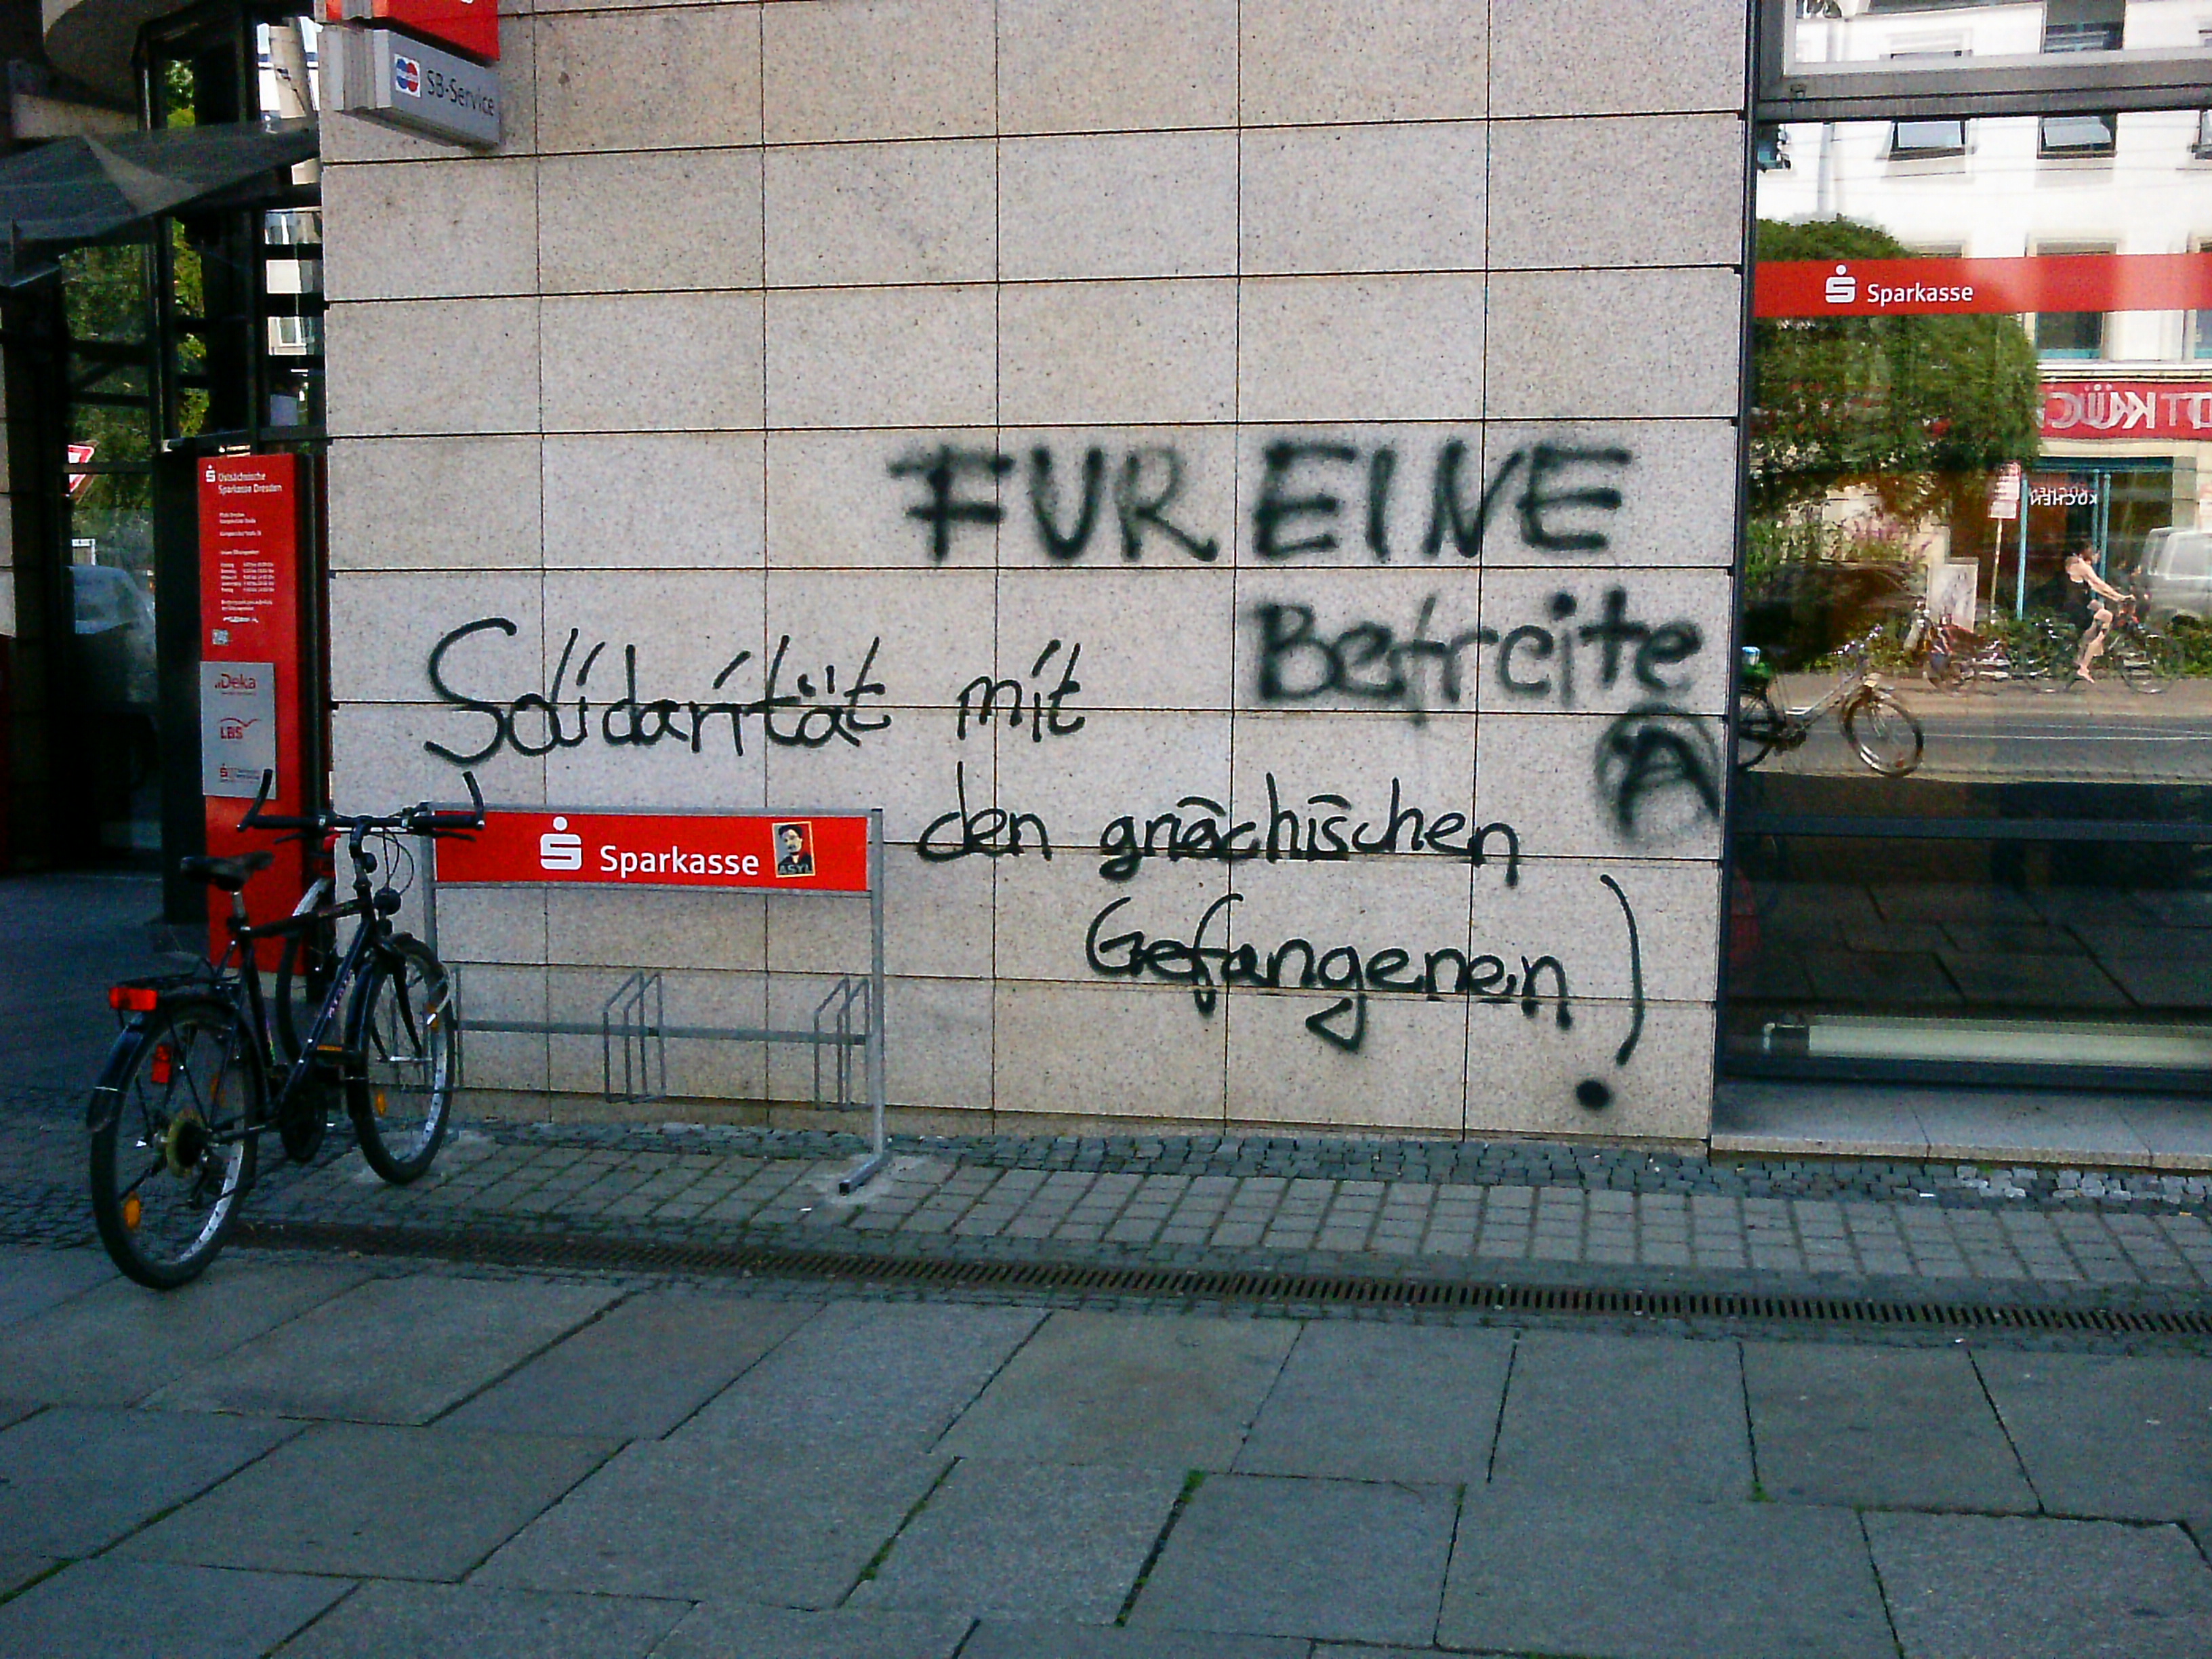 SB-Service
Sparkasse
FUR EINE
Befreite
A
Solidarität mit
den griechischen
Gefangenen !
Ostsächsische
Sparkasse Dresden
Deka
LBS
Sparkasse
ASYL
KÜCHEN